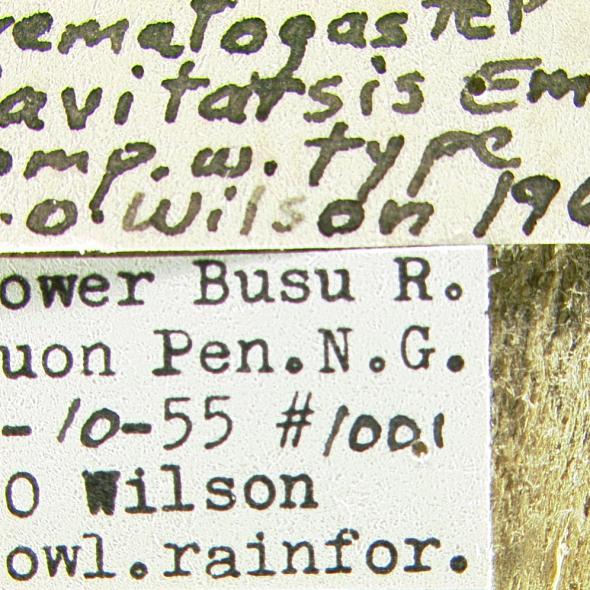 rematogaster
avitarsis Em
omp. w. type
.o. Wilson 196
ower Busu R.
uon Pen.N.G.
-10-55 #1001
O Wilson
owl.rainfor.